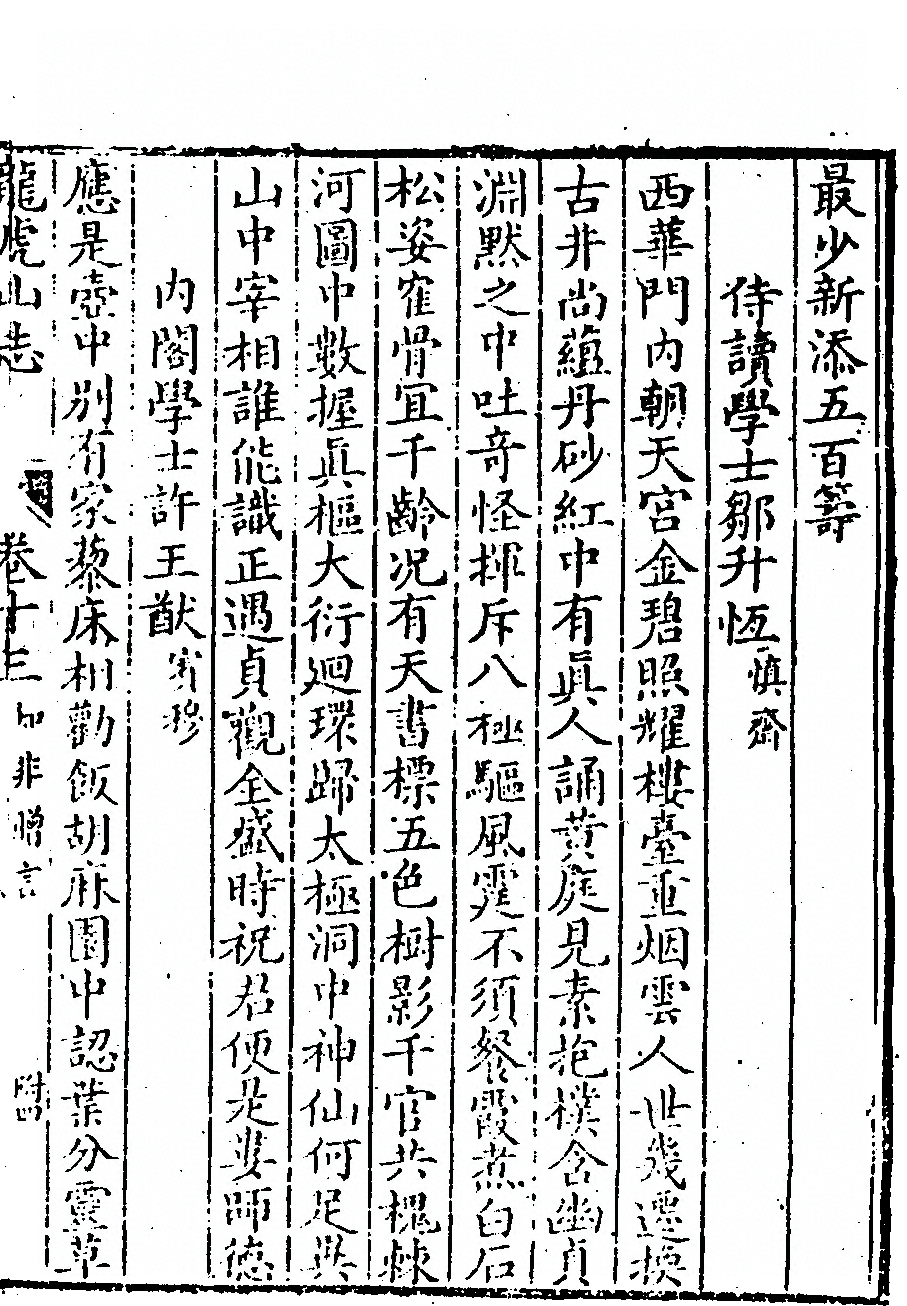 最少新添五百籌
侍讀學士鄒升恆慎齋
西華門内朝天宮金碧照耀樓臺重烟雲人世幾遷換
古井尚蘊丹砂紅中有眞人誦黃庭見素抱樸含幽貞
淵默之中吐竒怪揮斥八極驅風霆不須餐霞煮白石
松姿寉骨宜千齡况有天書標五色樹影千官共槐棘
河圖中數握眞樞大衍廻環歸太極洞中神仙何足與
山中宰相誰能識正遇貞觀全盛時祝君便是婁師德
内閣學士許王猷賓穆
應是壺中别有家藜床相勸飯胡麻園中認葉分靈草
龍虎山志 卷十三 知非贈言 附四